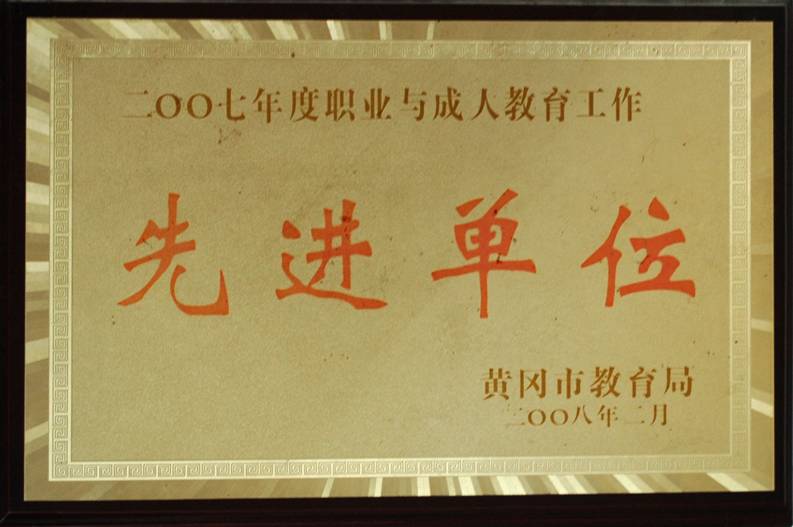 二〇〇七年度职业与成人教育工作
先进单位
黄冈市教育局
二〇〇八年二月